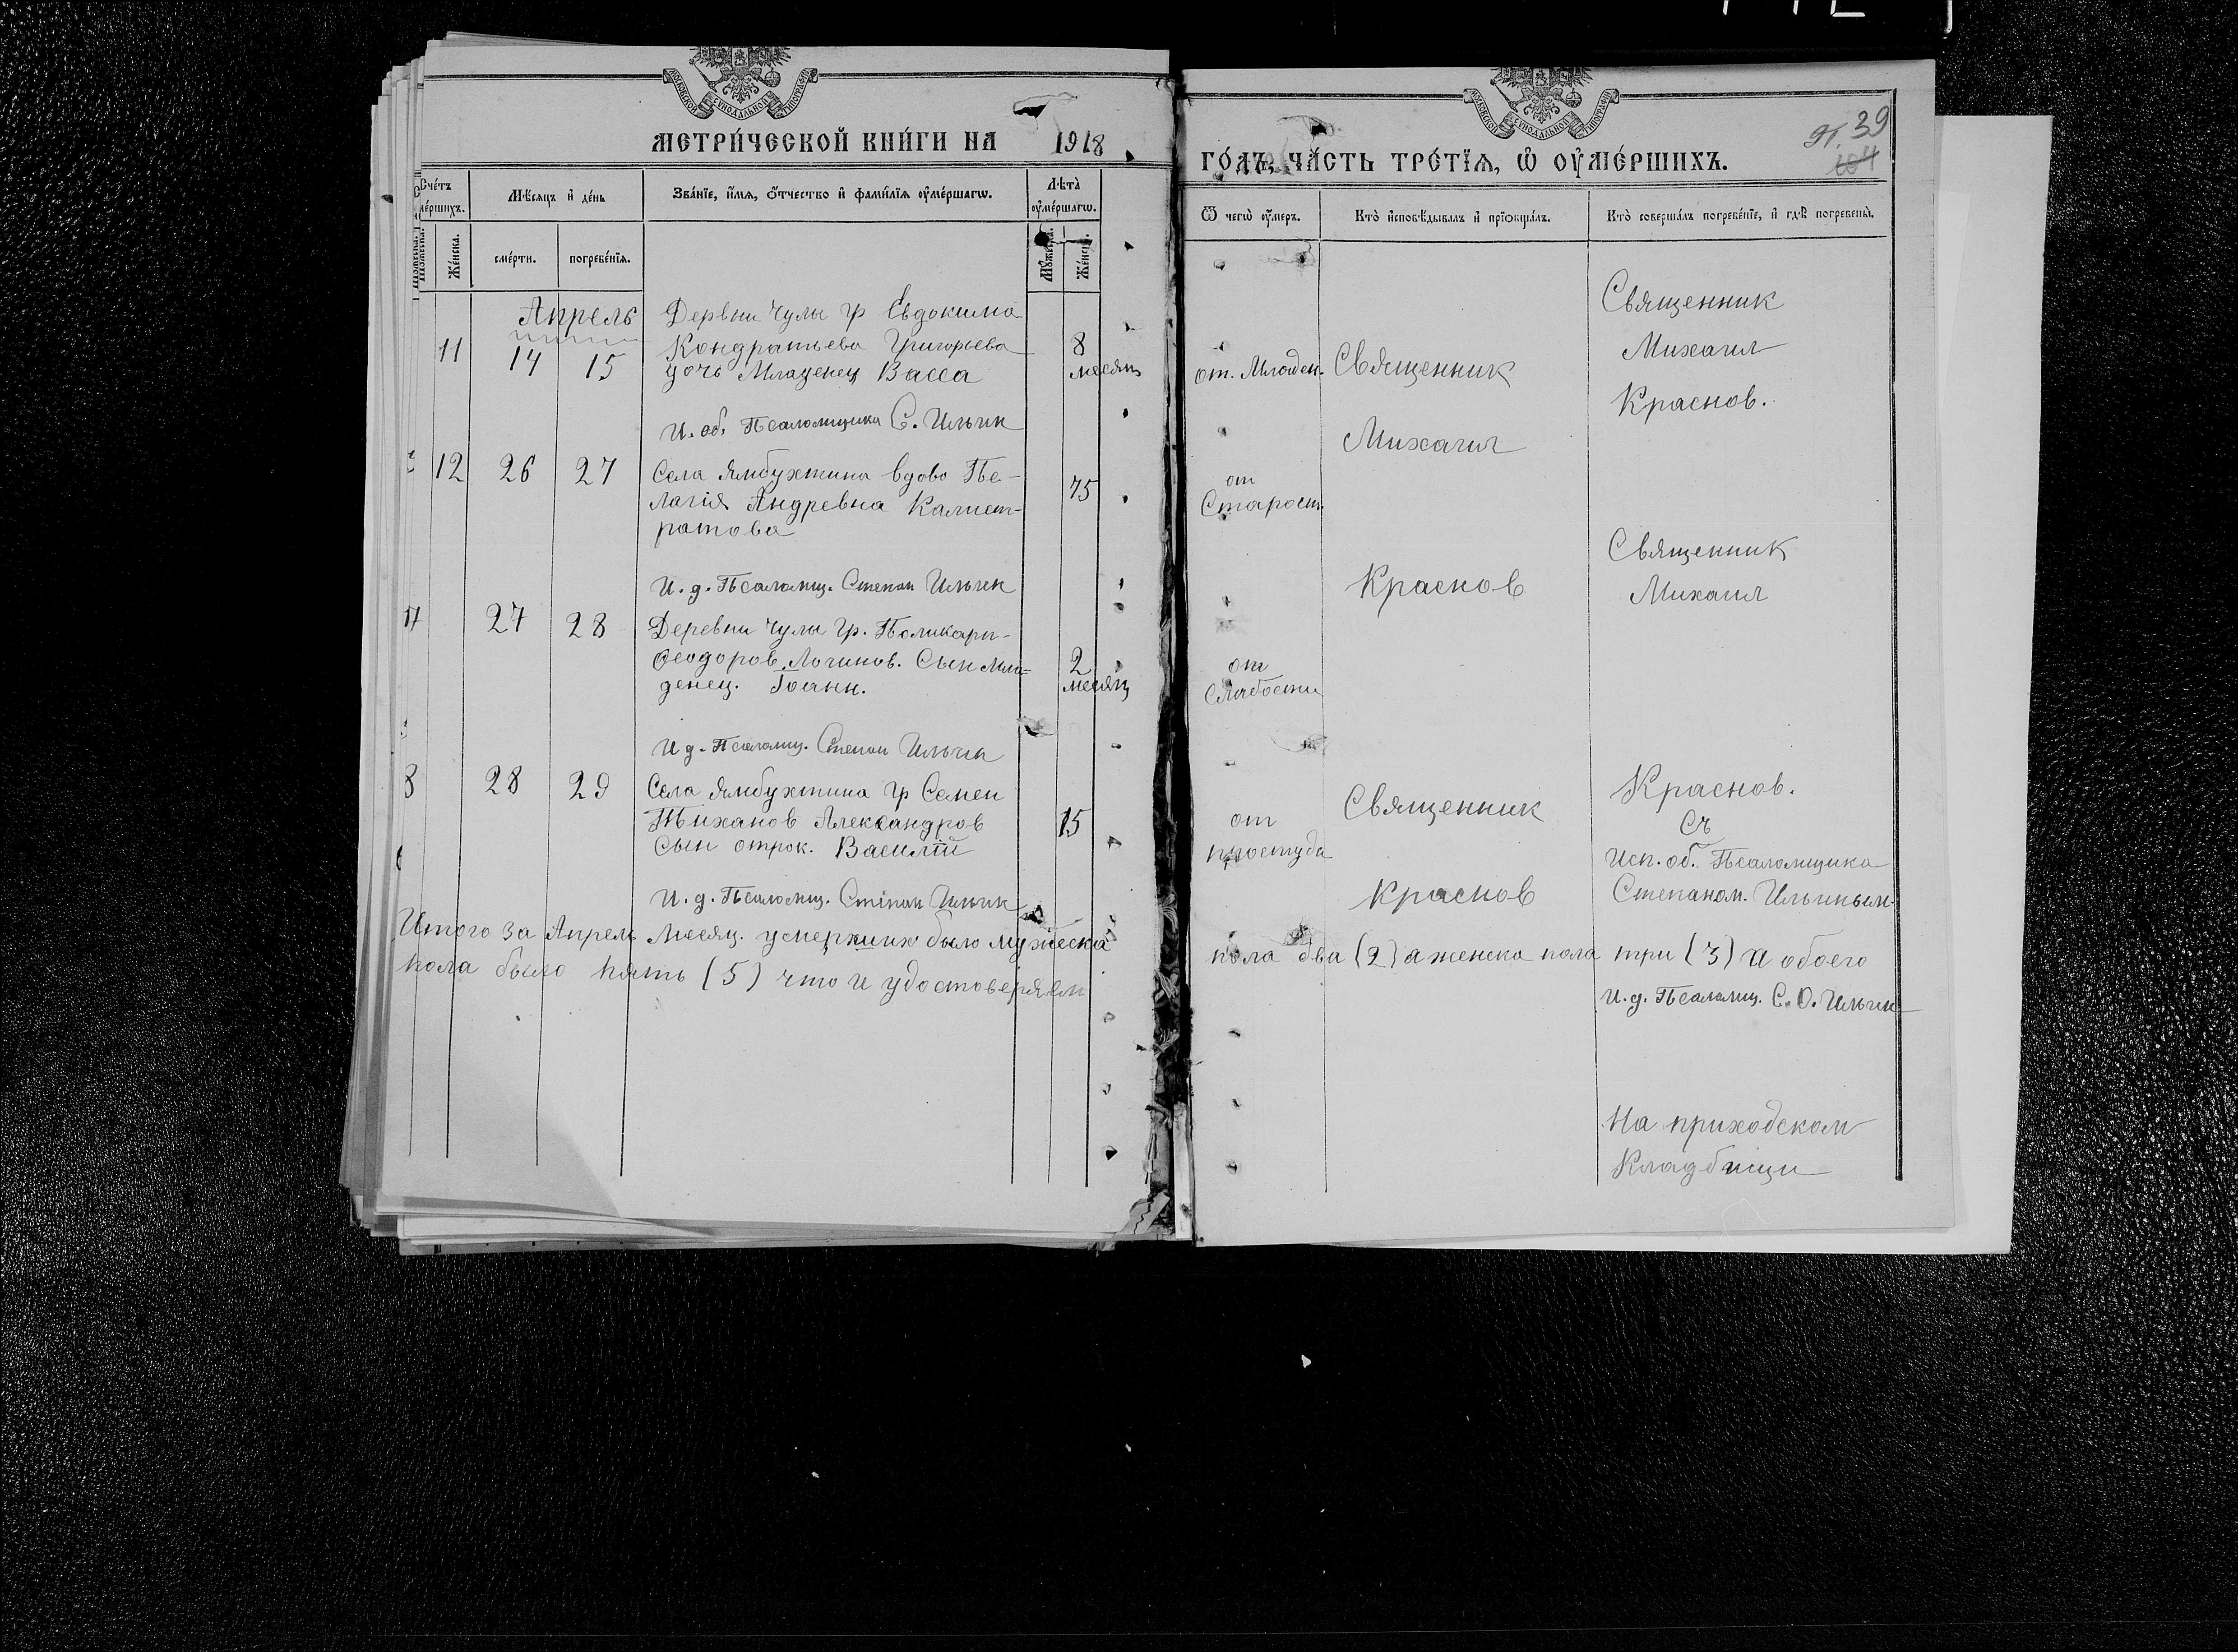 МЕТРИ́ЧЕСКОЙ КНИ́ГИ НА 1918
Счетъ умершихъ.
Мѣсяцъ и день
Званіе, имя, отчество и фамилія умершаго.
Лѣта умершаго.
Мужеска.
Женска.
смерти.
погребенія.
Мужеска.
Женска.
Апрель
11 14 15
Дервни Чулы гр Евдокима
Кондратьева Григорьева
дочь Младенец Васса
8
месяц
И. об. Псаломщика С. Ильин
12 26 27
Села Ямбухтина вдова Пе-
лагія Андревна Калист-
ратова
75
И. д. Псаломщ. Степан Ильин
7 27 28
Деревни Чулы Гр. Поликарп-
Феодоров. Логинов. Сын мла-
денец. Іоанн.
2
месяц
И д. Псаломщ. Степан Ильин
8 28 29
Села Ямбухтина гр Семен
Тиханов Александров
Сын отрок. Василій
15
И. д. Псаломщ. Степан Ильин
Итого за Апрель Месяц. умерших было мужеска
пола было пять (5) что и удостоверяем
ГО́ДЪ, ЧА́СТЬ ТРЕ́ТЇЯ, Ѡ ОУМЕ́РШИХЪ.
39
104
Ѿ чегѡ умеръ.
Кто исповѣдывалъ и пріобщалъ.
Кто совершалъ погребеніе, и гдѣ погребены.
от. Младен.
Священник
Михаил
от
Старост.
Краснов
от
Слабости
Священник
от
простуда
Краснов
Священник
Михаил
Краснов.
Священник
Михаил
Краснов.
Съ
Исп. об. Псаломщика
Степаном. Ильиным
пола два (2) а женска пола три (3) а обоего
И. д. Псаломщ. С. О. Ильин
На приходском
Кладбищи